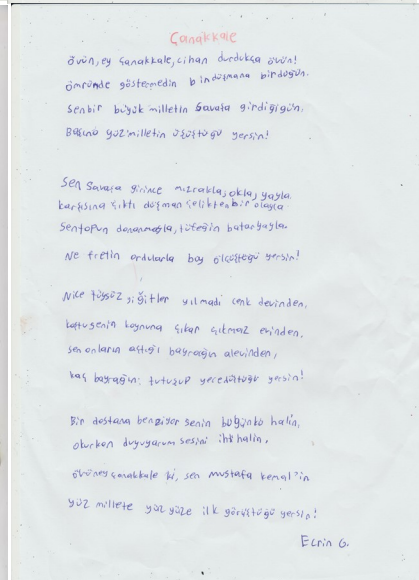 Çanakkale
övün, ey Çanakkale, cihan durdukça övün!
ömründe göstermedin bin düşmana bir düğün.
Sen bir büyük milletin Savaşa girdiği gün,
Başına yüz milletin üşüştüğü yersin!
Sen Savaşa girince mızrakla, okla, yayla
karşısına çıktı düşman çelikten bir alayla
Sen topun donanmayla, tüfeğin bataryayla.
Ne fretin ordularla boy ölçüştüğü yersin!
Nice tüysüz yiğitler yılmadı cenk devinden,
koynuna çıkar çıkmaz evinden.
sen onların açtığı bayrağın alevinden,
kaç bayrağın tutuşup yere düştüğü yersin!
Bir destana benziyor senin bugünkü halin,
okurken duyuyorum sesini ihtilalin.
övün ey Çanakkale ki, sen Mustafa kemal'in
yüz millete yüz yüze ilk görüştüğü yersin!
Ecrin G.